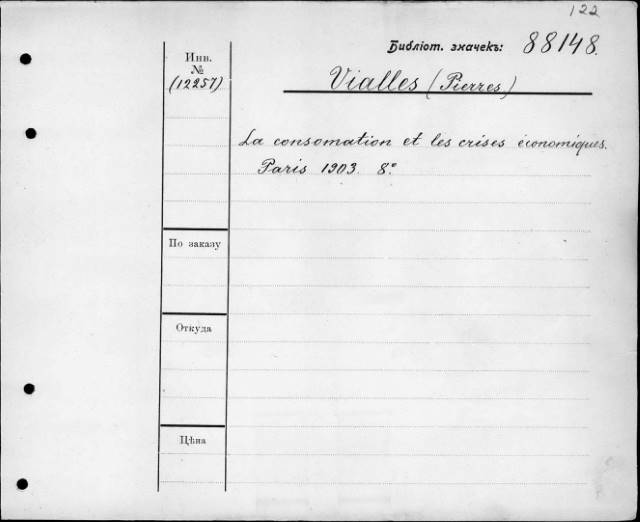 122
Библіот. значекъ: 88148.
Инв.
№
(12257)
Vialles (Pierres)
La consomation et les crises économiques.
Paris 1903. 8°
По заказу
Откуда
Цѣна